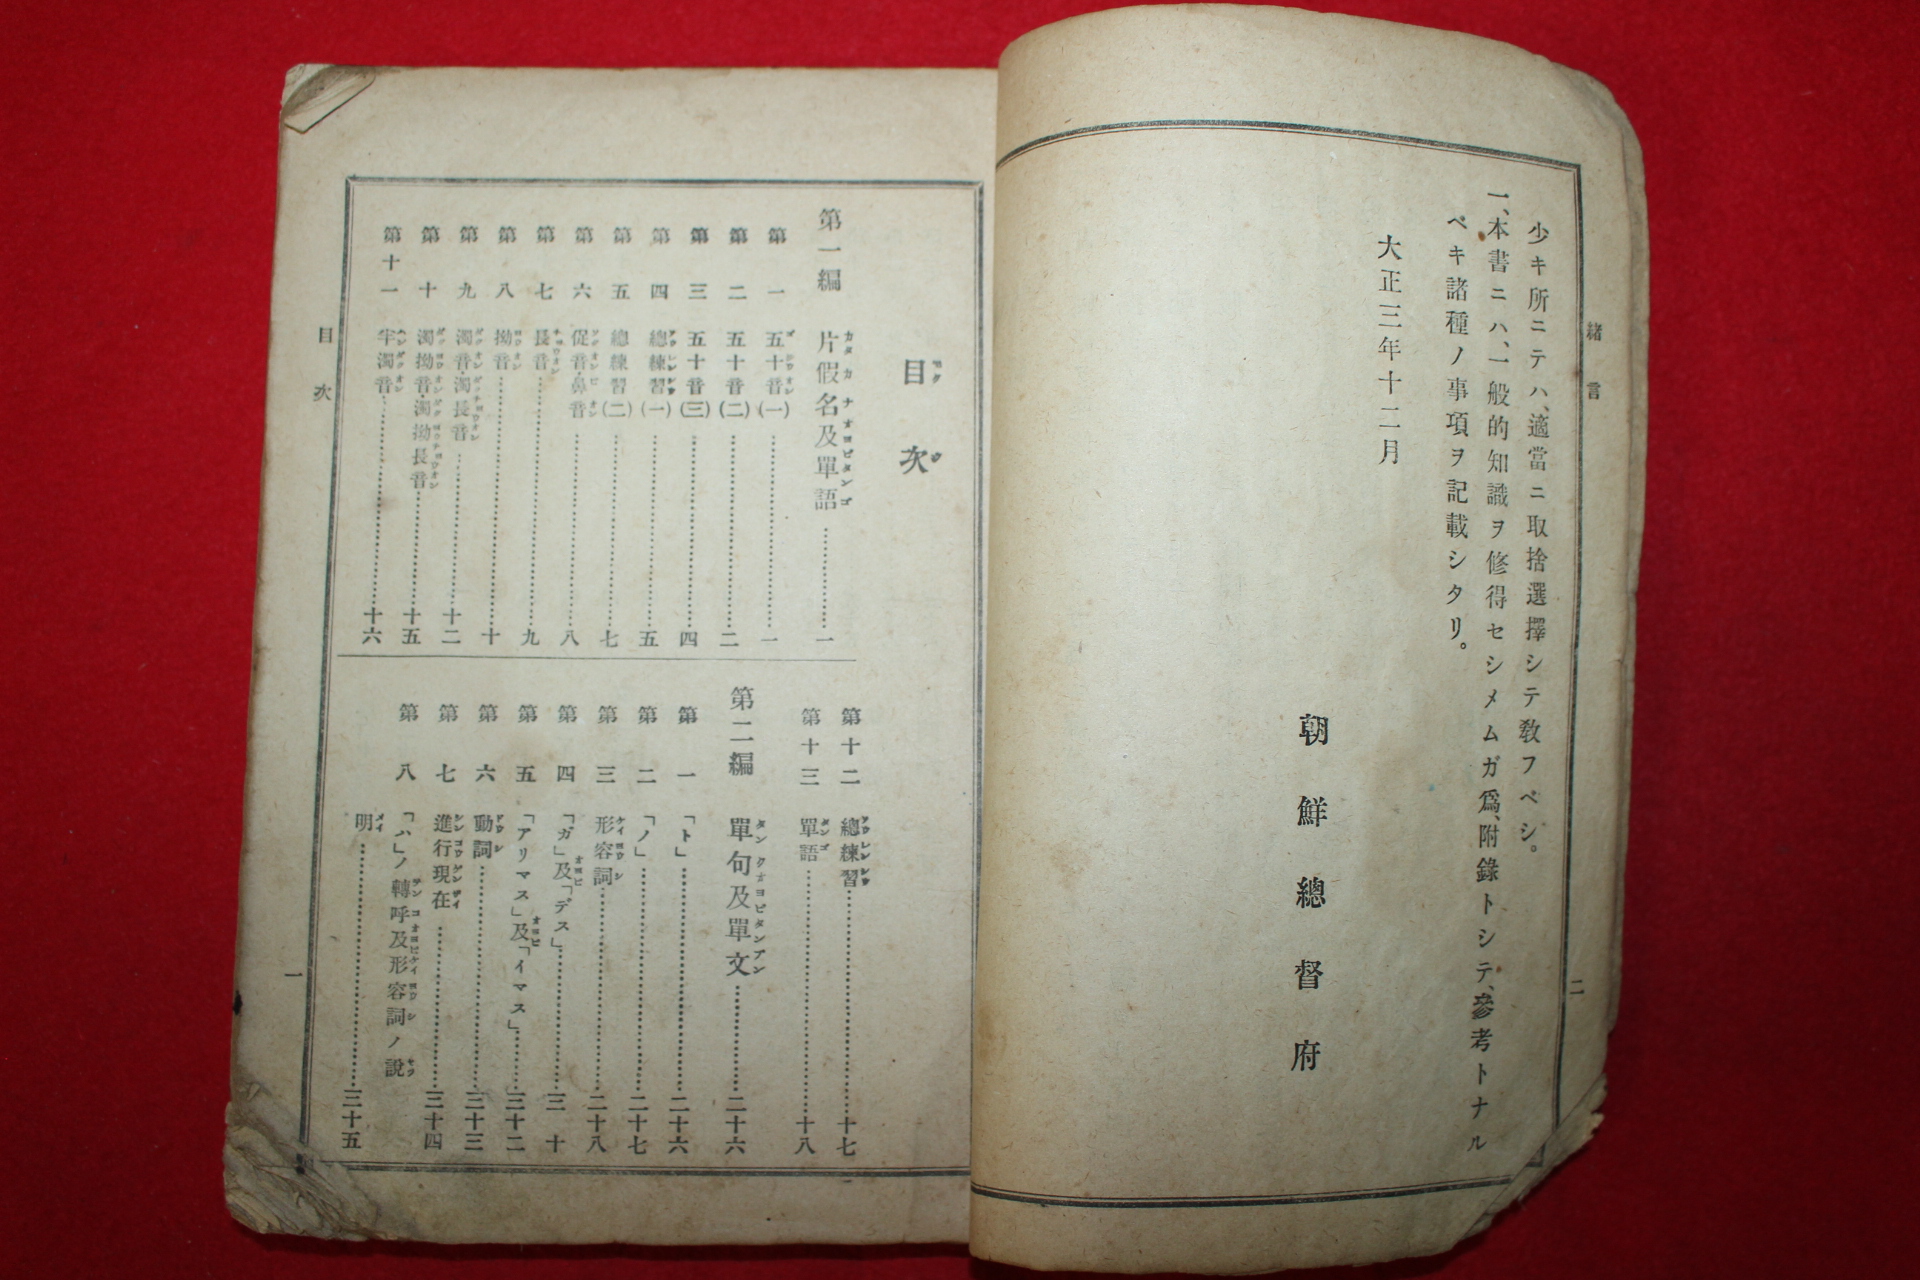 緒言
二
少キ所ニテハ、適當ニ取捨選擇シテ教フベシ。
一、本書ニハ、一般的知識ヲ修得セシメムガ爲、附錄トシテ、參考トナル
ベキ諸種ノ事項ヲ記載シタリ。
大正三年十二月
朝鮮總督府
目次
第一編 片假名及單語 一
第一 五十音(一) 一
第二 五十音(二) 二
第三 五十音(三) 四
第四 總練習(一) 五
第五 總練習(二) 七
第六 促音・鼻音 八
第七 長音 九
第八 拗音 十
第九 濁音・濁長音 十二
第十 濁拗音・濁拗長音 十五
第十一 半濁音 十六
第十二 總練習 十七
第十三 單語 十八
第二編 單句及單文 二十六
第一 「ト」 二十六
第二 「ノ」 二十七
第三 形容詞 二十八
第四 「ガ」及「デス」 三十
第五 「アリマス」及「イマス」 三十二
第六 動詞 三十三
第七 進行現在 三十四
第八 「ハ」ノ轉呼及形容詞ノ說
明 三十五
目次
一